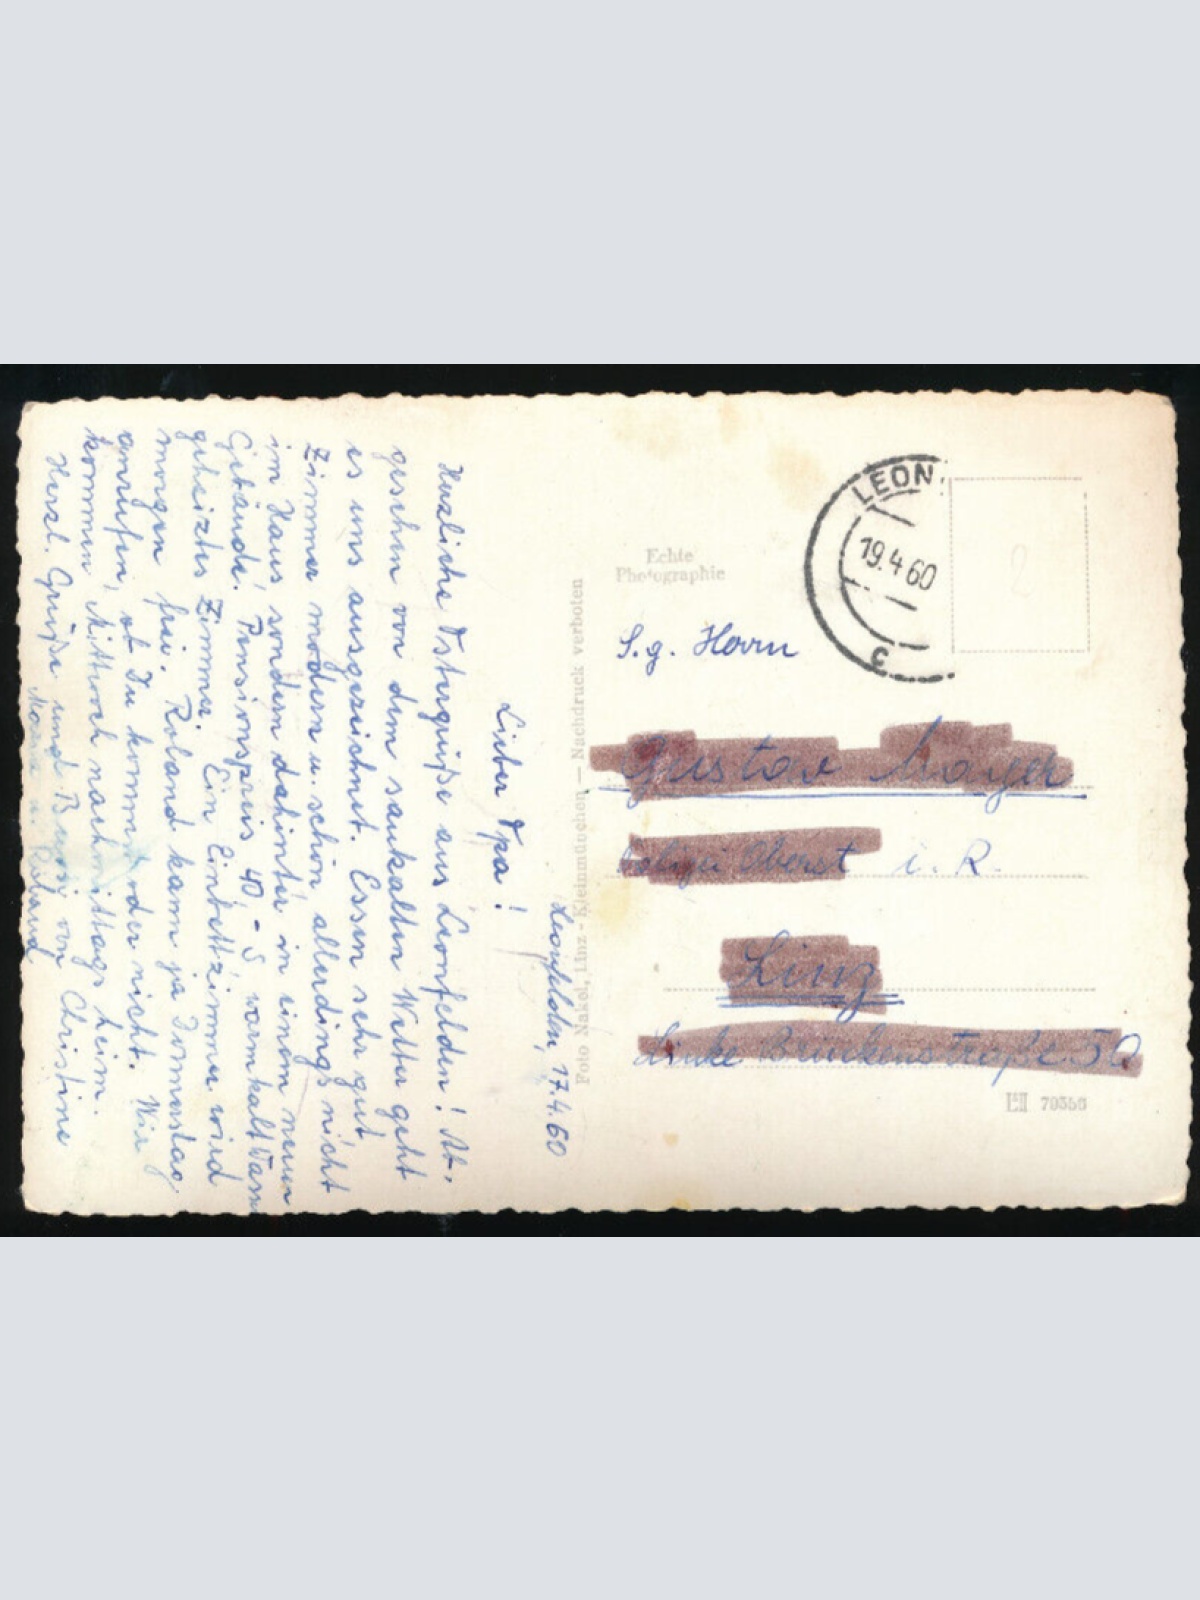 Leonfelden, 17.4.60
Lieber Opa!
Herzliche Ostergrüße aus Leonfelden! Ab-
gesehen von dem saukalten Wetter geht
es uns ausgezeichnet. Essen sehr gut
Zimmer modern u. schön allerdings nicht
im Haus sondern dahinter in einem neuen
Gebäude. Pensionspreis 40,- S warmkaltWass
geheiztes Zimmer. Ein Einbettzimmer wird
morgen frei. Roland kann ja
anrufen, ob Du kommst oder nicht. Wir
kommen Mittwoch nachmittags heim.
Herzl. Grüße und Bussi von Christine
Mama u. Roland
Foto Nakel, Linz - Kleinmünchen — Nachdruck verboten
Echte
Photographie
LEON.
19.4.60
3
2
S. g. Herrn
Gustav Mayer
Polizei Oberst i. R.
Linz
Linke Brückenstraße 50